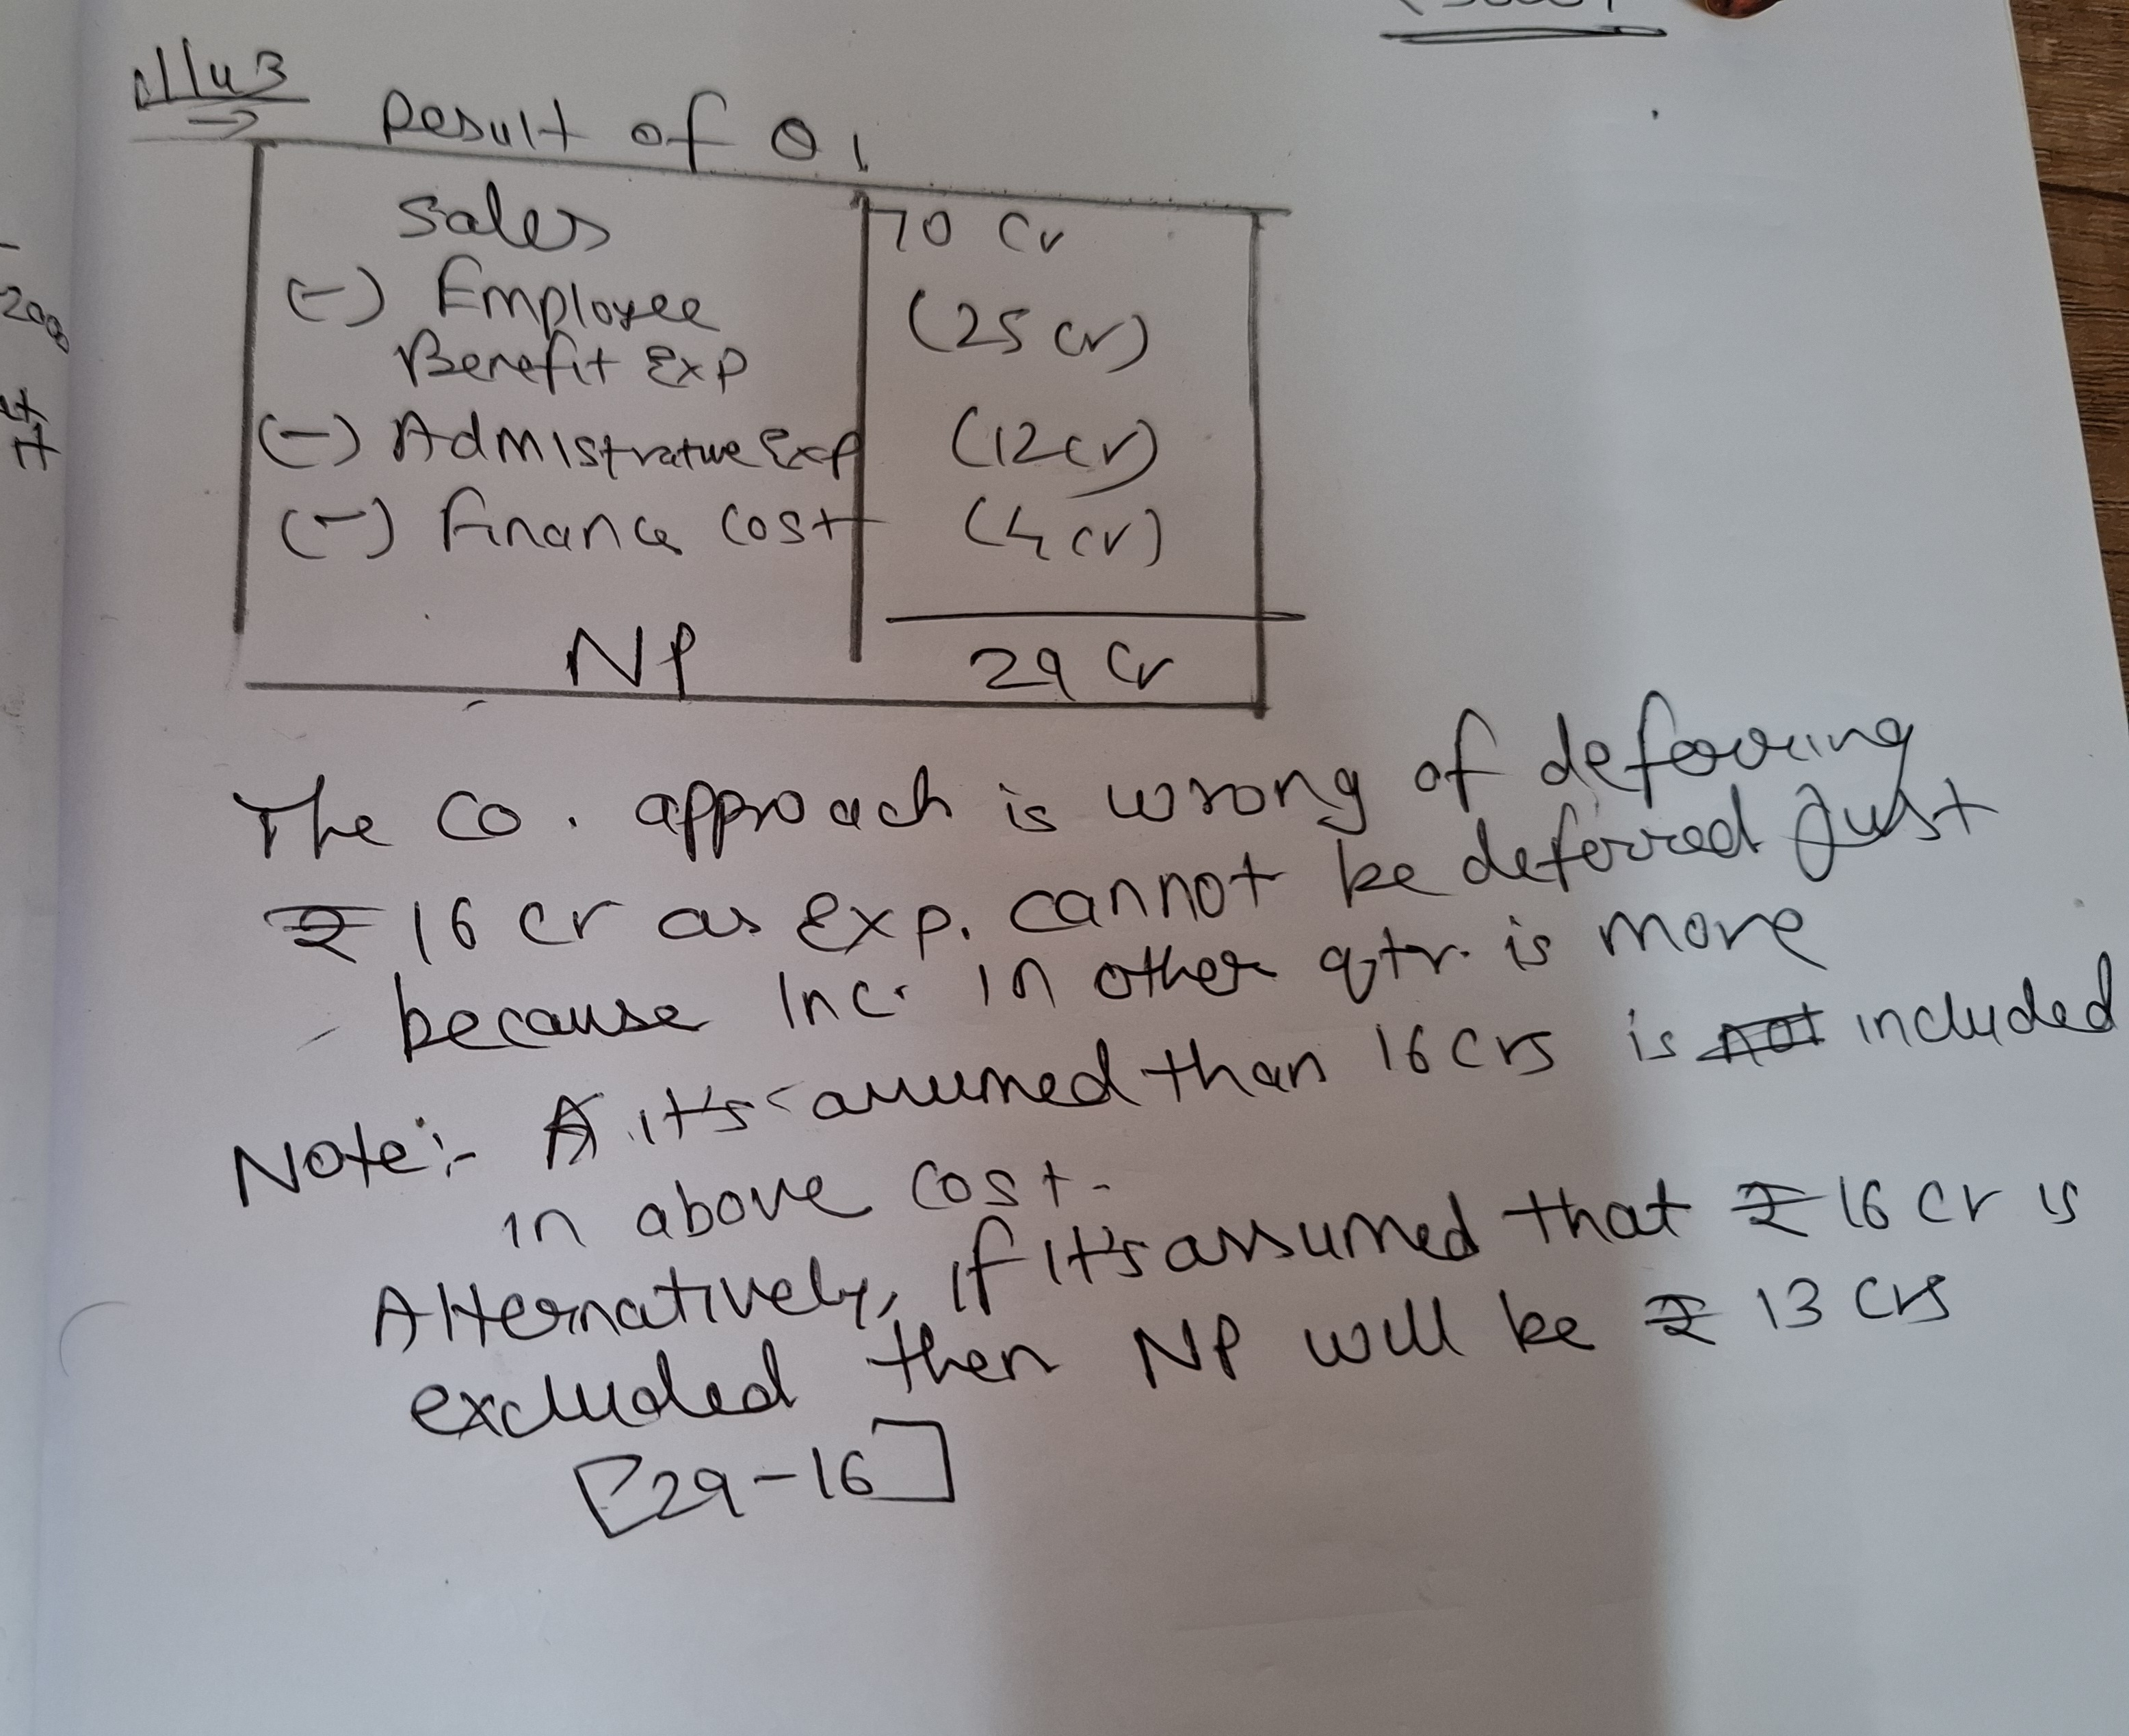 illu 3
Result of Q1
Sales 70 Cr
(-) Employee
Benefit Exp (25 Cr)
(-) Admistrative Exp (12 cr)
(-) Finance Cost (4 cr)
NP 29 Cr
The Co. approach is wrong of deferring
₹ 16 Cr as exp. cannot be deferred Just
because Inc. in other qtr. is more
Note:- it's assumed than 16 Crs is not included
in above Cost.
Alternatively, if it's assumed that ₹ 16 Cr is
excluded then NP will be ₹ 13 Crs
[29-16]
200